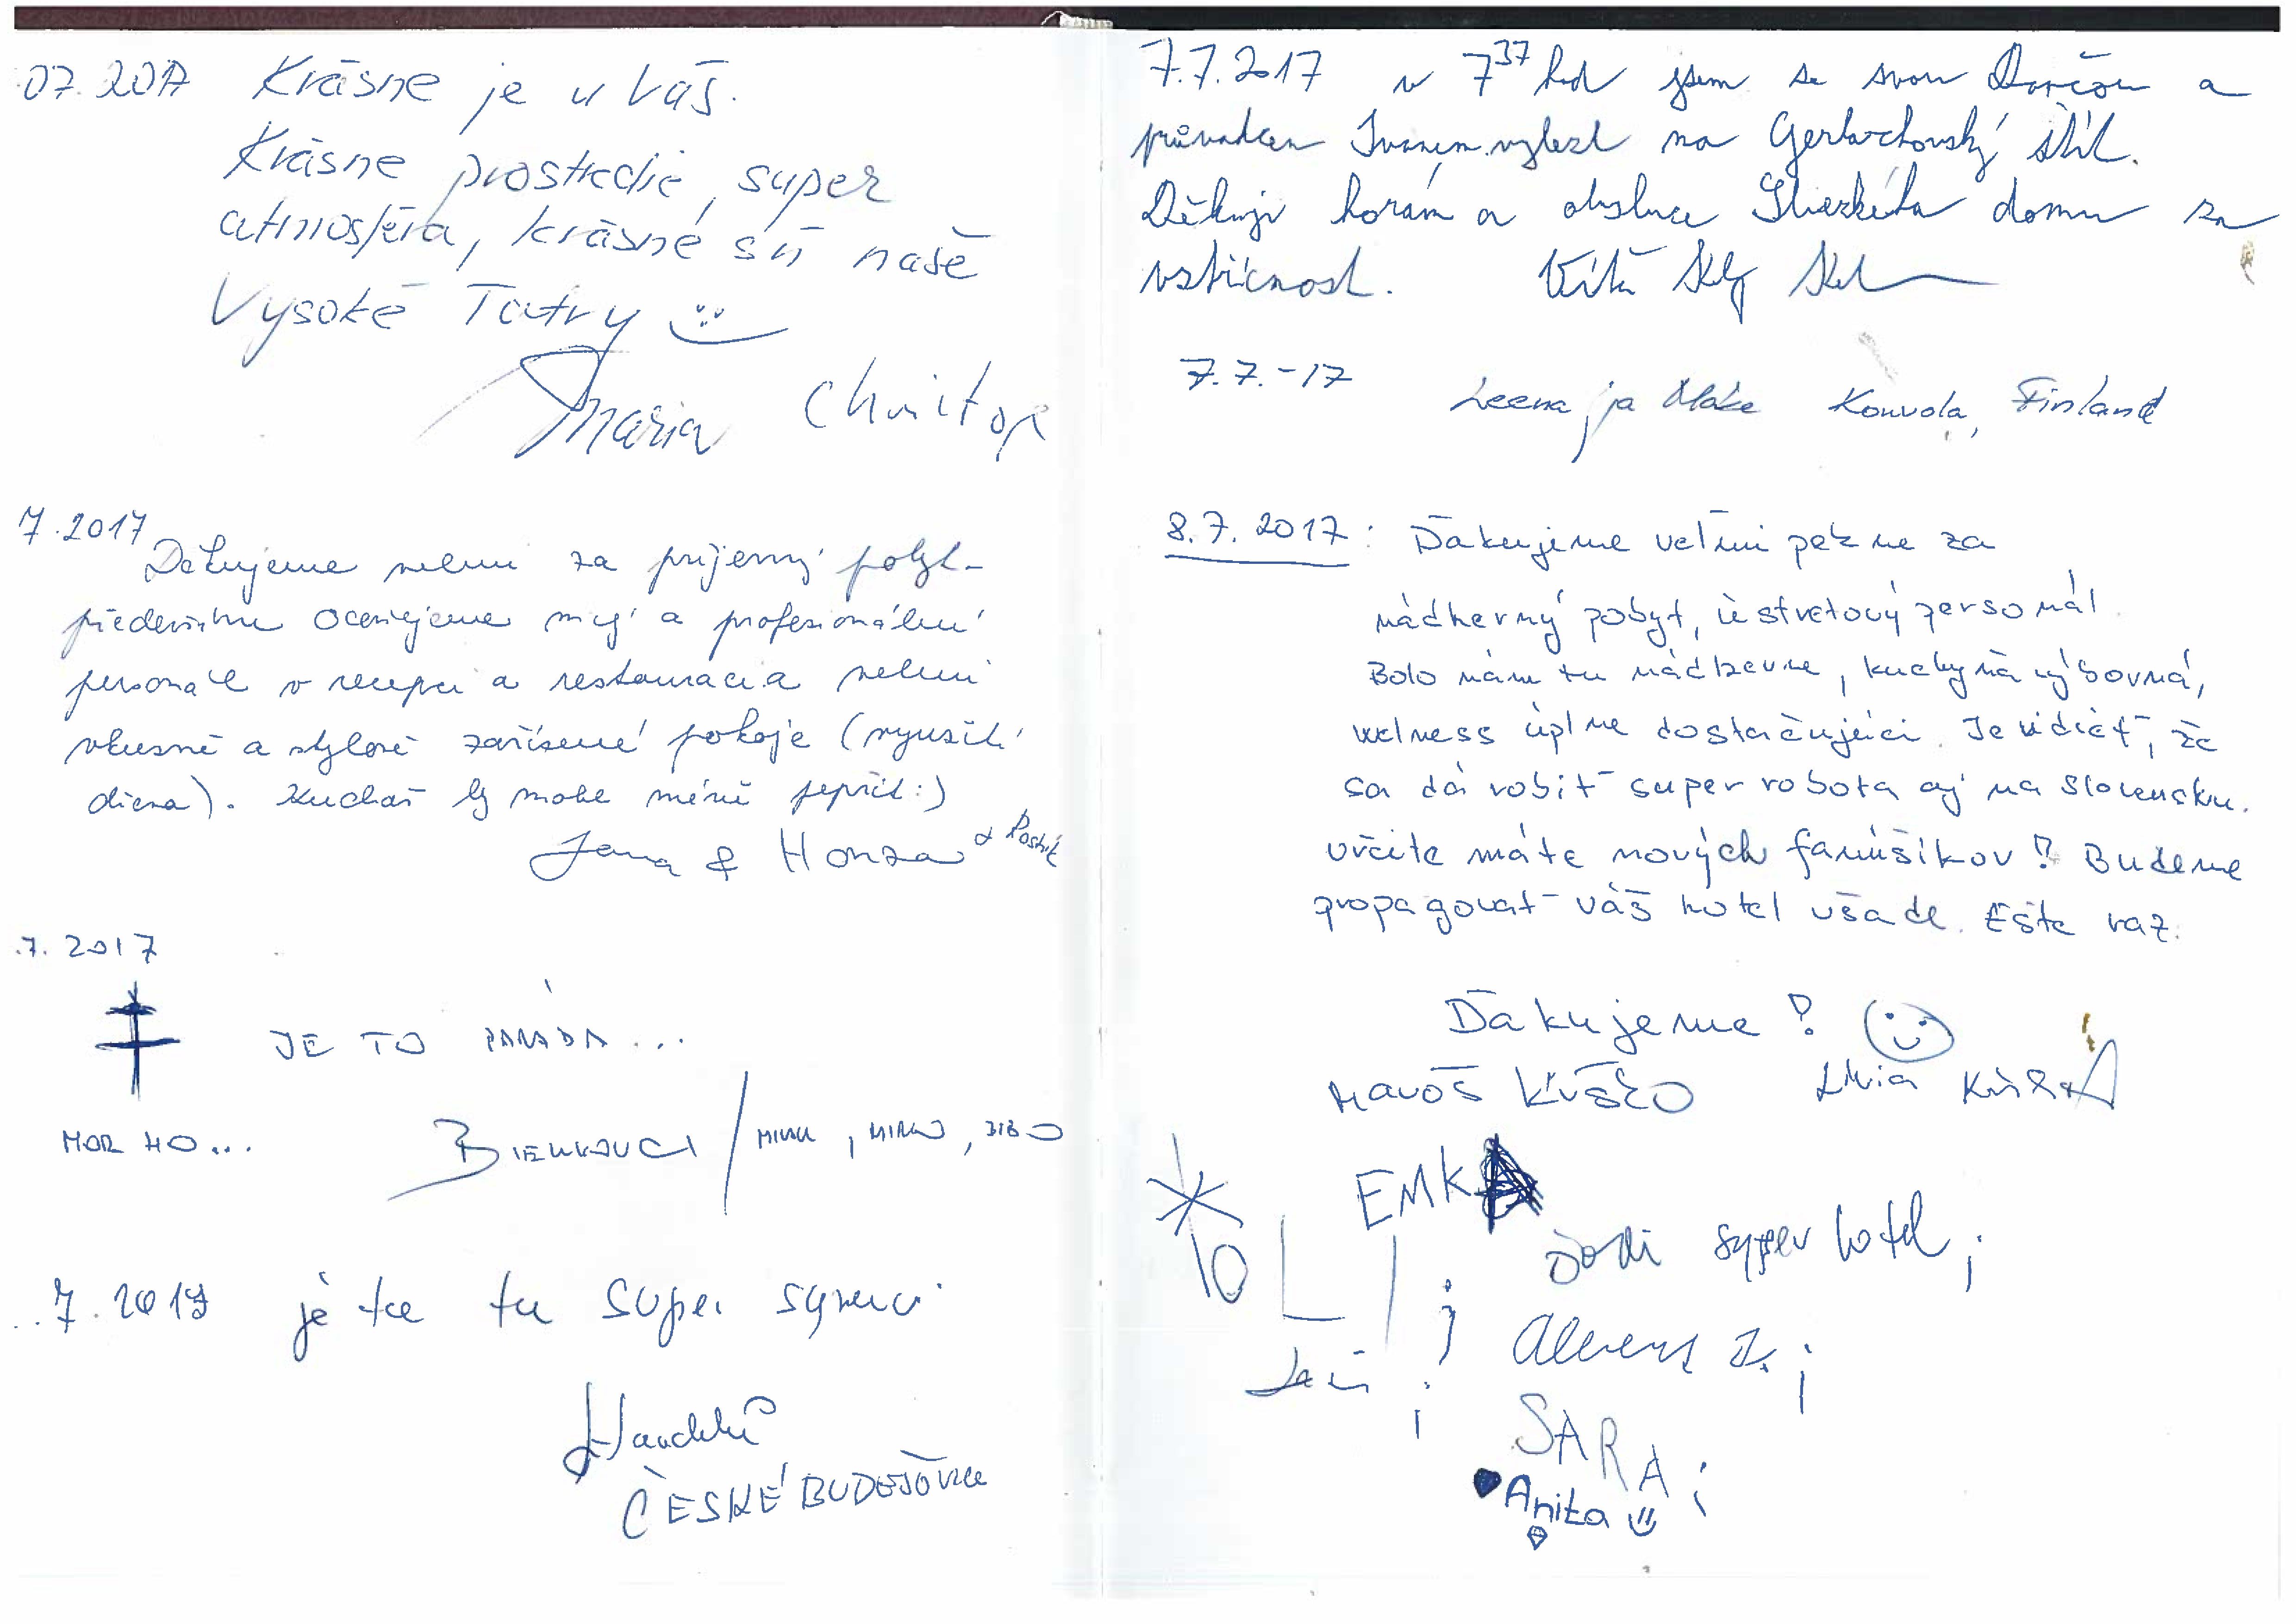 07.2017 Krásne je u Vás.
Krásne prostredie, super
atmosféra, krásné sú naše
Vysoké Tatry
Maria Christop
7.2017
Děkujeme velmi za príjemný pobyt -
především oceňujeme milý a profesionální
personál v recepci a restauraci a velmi
vkusně a stylově zařízené pokoje (využití
dřeva). Kuchař by mohl méně pepřit :)
Jana & Honza &
.7.2017
JE TO PARÁDA...
MOR HO...
BIENKOVCI / MIRKA, MIRKO, BIBO
7.2017 je to tu super
ČESKÉ BUDEJOVICE
7.7.2017 v 7³⁷ hod jsem se svou Darčou a
průvodcem Ivanem vylezl na Gerlachovský štít.
Děkuji horám a obsluze Sliezkého domu za
vstřícnost. Víťa
7.7.-17 Leena ja Make Kouvola, Finland
8.7.2017: Ďakujeme veľmi pekne za
nádherný pobyt, ústretový personál.
Bolo nám tu nádherne, kuchyňa výborná,
welness úplne dostačujúci. Je vidieť, že
sa dá robiť super robota aj na Slovensku.
Určite máte nových fanúšikov! Budeme
propagovať váš hotel všade. Ešte raz
Ďakujeme!
Maroš Kuško Lívia
EMKA
super hotel ;
SARA ;
Anita